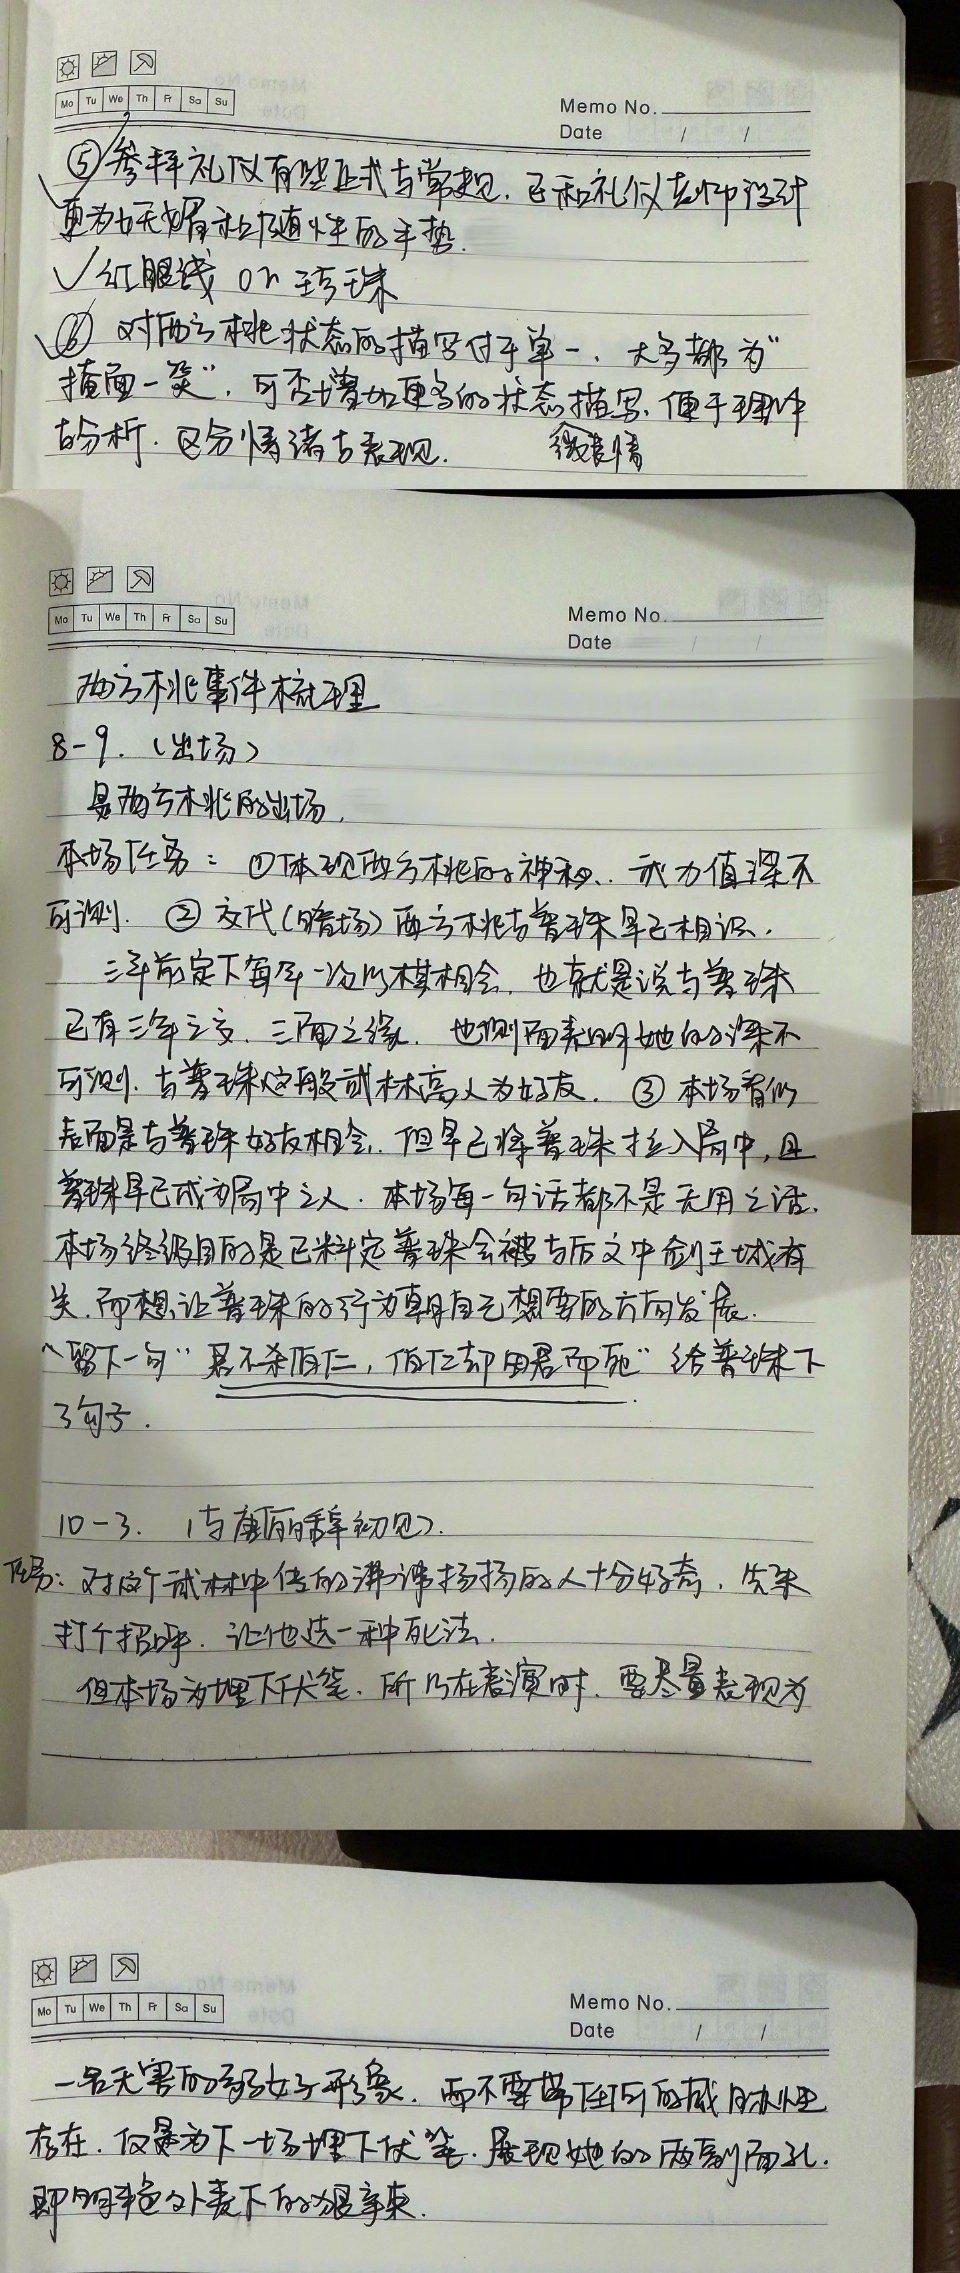 Mo Tu We Th Fr Sa Su
Memo No.
Date / /
⑤参拜礼仪有些正式与常规，已和礼仪老师设计
更为妩媚和随性的手势。
✓红眼线 or 珍珠
⑥ 对西方桃状态的描写付于单一，大多都为“
掩面一笑”，可否增加更多的状态描写，便于理解
与分析，区分情绪与表现。 微表情
Mo Tu We Th Fr Sa Su
Memo No.
Date / /
西方桃事件梳理
8-9.（出场）
是西方桃的出场，
本场任务：①体现西方桃的神秘、武力值深不
可测。②交代（暗场）西方桃与普珠早已相识，
三年前定下每年一次以棋相会，也就是说与普珠
已有三年之交，三面之缘，也侧面表明她的深不
可测，与普珠这般武林高人为好友。③本场看似
表面是与普珠好友相会，但早已将普珠拉入局中，且
普珠早已成为局中之人，本场每一句话都不是无用之话，
本场终级目的是已料定普珠会被与后文中剑王城有
关，而想让普珠的行为朝自己想要的方向发展。
留下一句“君不杀伯仁，伯仁却因君而死”给普珠下
了句子。
10-3.（与唐俪辞初见）
任务：对这个武林中传的沸沸扬扬的人十分好奇，先来
打个招呼，让他选一种死法。
但本场为埋下伏笔，所以在表演时，要尽量表现为
Mo Tu We Th Fr Sa Su
Memo No.
Date / /
一名无害的弱女子形象，而不要带任何的威胁性
存在，仅是为下一场埋下伏笔，展现她的两副面孔，
即绝色外表下的狠辣。